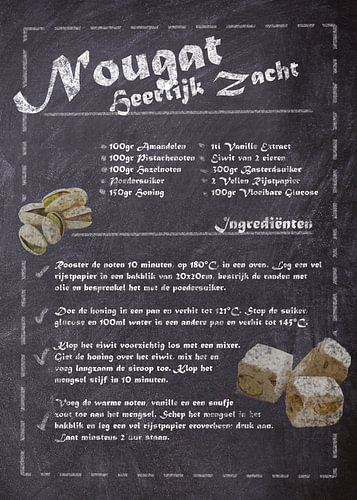 Nougat
Heerlijk Zacht
100gr Amandelen
100gr Pistachenoten
100gr Hazelnoten
Poedersuiker
150gr Honing
1tl Vanille Extract
Eiwit van 2 eieren
300gr Basterdsuiker
2 Vellen Rijstpapier
100gr Vloeibare Glucose
Ingrediënten
Rooster de noten 10 minuten, op 180°C, in een oven. Leg een vel
rijstpapier in een bakblik van 20x20cm, bestrijk de randen met
olie en besprenkel het met de poedersuiker.
Doe de honing in een pan en verhit tot 121°C. Stop de suiker,
glucose en 100ml water in een andere pan en verhit tot 145°C.
Klop het eiwit voorzichtig los met een mixer.
Giet de honing over het eiwit, mix het en
voeg langzaam de siroop toe. Klop het
mengsel stijf in 10 minuten.
Voeg de warme noten, vanille en een snufje
zout toe aan het mengsel. Schep het mengsel in het
bakblik en leg een vel rijstpapier eroverheen; druk aan.
Laat minstens 2 uur staan.